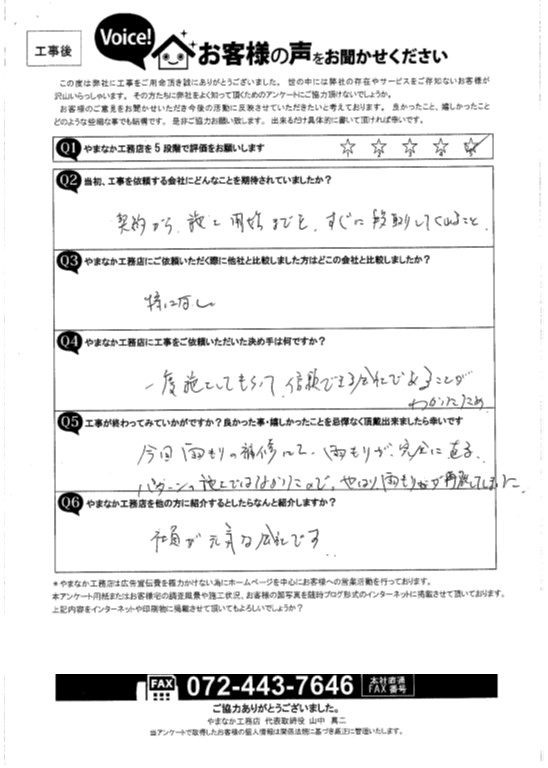 工事後
Voice!
お客様の声をお聞かせください
この度は弊社に工事をご用命頂き誠にありがとうございました。世の中には弊社の存在やサービスをご存知ないお客様が
沢山いらっしゃいます。その方たちに弊社をよく知って頂くためのアンケートにご協力頂けないでしょうか。
お客様のご意見をお聞かせいただき今後の活動に反映させていただきたいと考えております。良かったこと、嬉しかったこと
どのような些細な事でも結構です。是非ご協力お願い致します。出来るだけ具体的に書いて頂ければ幸いです。
Q1 やまなか工務店を5段階で評価をお願いします
1 2 3 4 5
Q2 当初、工事を依頼する会社にどんなことを期待されていましたか？
契約から、施工開始までを、すぐに段取りしてくれること、
Q3 やまなか工務店にご依頼いただく際に他社と比較しました方はどこの会社と比較しましたか？
特になし
Q4 やまなか工務店に工事をご依頼いただいた決め手は何ですか？
一度施工してもらって、信頼できる会社であることが
わかったため
Q5 工事が終わってみていかがですか？良かった事・嬉しかったことを忌憚なく頂戴出来ましたら幸いです
今回雨もりの補修にて、雨もりが、完全に直る、
パターンの施工ではなかったので、やはり雨もりが再発してしまった
Q6 やまなか工務店を他の方に紹介するとしたらなんと紹介しますか？
社員が元気な会社です。
＊やまなか工務店は広告宣伝費を極力かけない為にホームページを中心にお客様への営業活動を行っております。
本アンケート用紙またはお客様宅の調査風景や施工状況、お客様の顔写真を随時ブログ形式のインターネットに掲載させて頂いております。
上記内容をインターネットや印刷物に掲載させて頂いてもよろしいでしょうか？
FAX 072-443-7646 本社直通
FAX番号
ご協力ありがとうございました。
やまなか工務店 代表取締役 山中 真二
当アンケートで取得したお客様の個人情報は関係法規に基づき厳正に管理いたします。